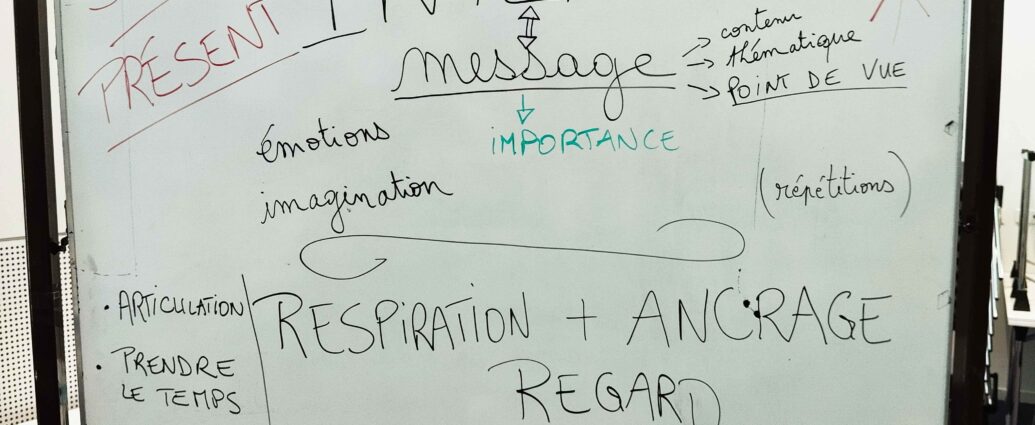 PRÉSENT
message
→ contenu
→ thématique
→ POINT DE VUE
iMPORTANCE
émotions
imagination
(répétitions)
• ARTICULATION
• PRENDRE
LE TEMPS
RESPiRATION + ANCRAGE
REGARD